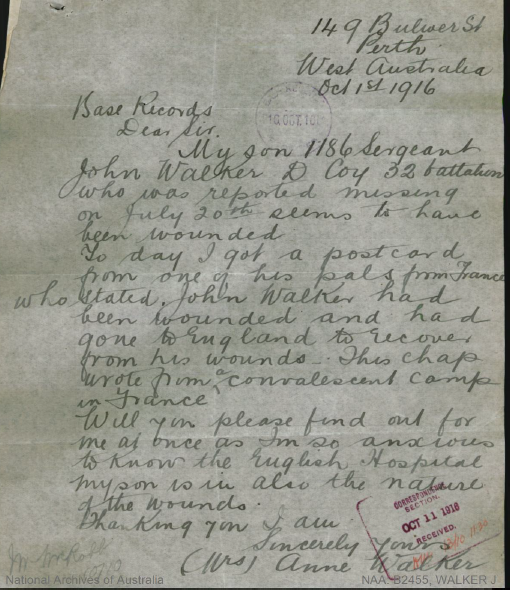 149 Bulwer St
Perth
West Australia
Oct 1st 1916
Base Records
Dear Sir.
My son 1186 Sergeant
John Walker D Coy 32 battalion
who was reported missing
on July 20th seems to have
been wounded
To day I got a postcard
from one of his pals from France
who stated John Walker had
been wounded and had
gone to England to recover
from his wounds. This chap
wrote from a convalescent camp
in France
Will you please find out for
me at once as I'm so anxious
to know the English Hospital
my son is in also the nature
of the wounds.
Thanking you I am
Sincerely yours
(Mrs) Anne Walker
CORRESPONDENCE
SECTION.
OCT 11 1916
RECEIVED.
National Archives of Australia
NAA: B2455, WALKER J